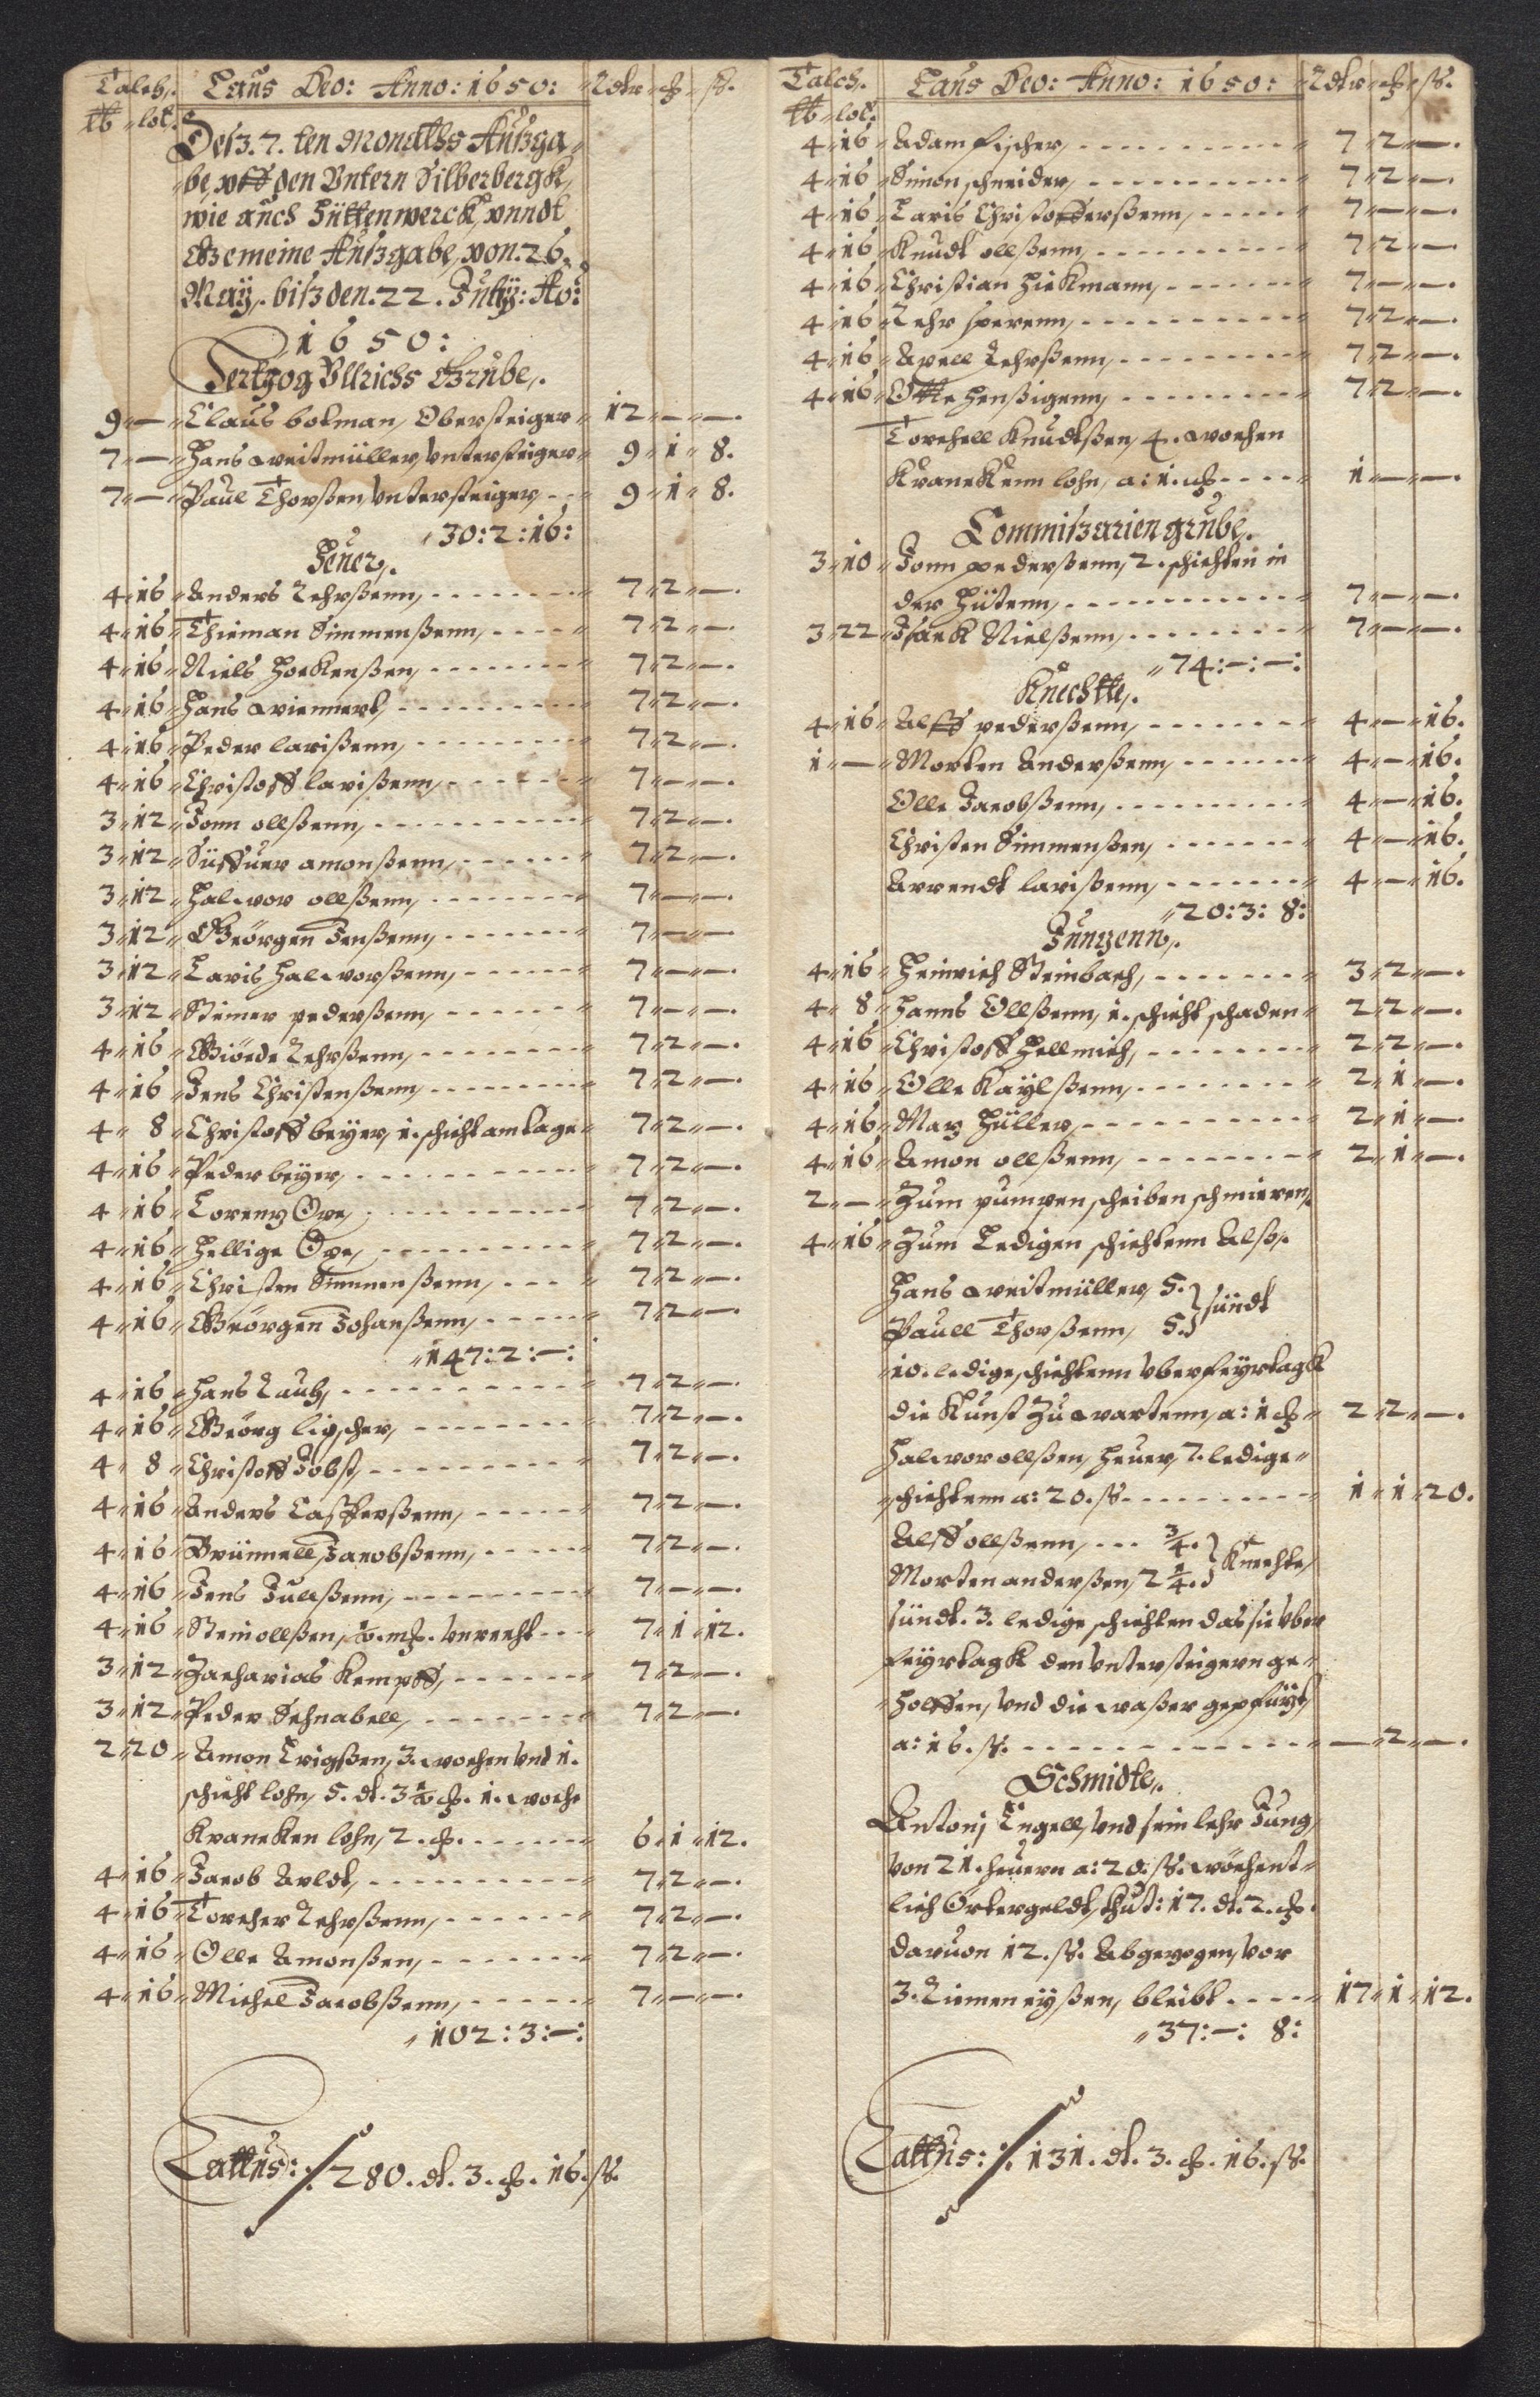 Talch. Laus Deo: Anno: 1650: Rdtr ₰ ß.
lb lot.
Desz. 7. ten Monaths Auszga
be, vff den Vntern Silberbergk,
wie auch Hüttenwerck, vnndt
Gemeine Auszgabe, von. 26.
May. bisz den. 22. July: Ao:
1650:
Hertzog Vllrichs Grube.
9 — Claus botman, Obersteiger 12 — —.
7 — Hans Weitmüller, Vntersteiger 9 1 8.
7 — Paul Thorßen, Vntersteiger 9 1 8.
30:2:16:
Heuer.
4 16 Anders Lehrßenn, 7 2 —.
4 16 Thieman Simmenßenn, 7 2 —.
4 16 Niels Hockenßen, 7 2 —.
4 16 Hans Wiennert, 7 2 —.
4 16 Peder larißenn, 7 2 —.
4 16 Christoff larißenn, 7 — —.
3 12 Jonn ollßenn, 7 2 —.
3 12 Süffuer amonßenn, 7 2 —.
3 12 Halwor ollßenn, 7 — —.
3 12 Geörgen Jenßenn, 7 — —.
3 12 Laris Halworßenn, 7 — —.
3 12 Steiner pederßenn, 7 — —.
4 16 Giöede Lehrßenn, 7 2 —.
4 16 Jens Christenßenn, 7 2 —.
4 8 Christoff beyer, 1. schicht am tage 7 2 —.
4 16 Peder beyer, 7 2 —.
4 16 Lorentz Ope, 7 2 —.
4 16 Hellige Ope, 7 2 —.
4 16 Christen Simmenßenn, 7 2 —.
4 16 Geörgen Johanßenn, 7 2 —.
147:2:—:
4 16 Hans Lautz, 7 2 —.
4 16 Geörg lischer, 7 2 —.
4 8 Christoff Jobst, 7 2 —.
4 16 Anders Casperßenn, 7 2 —.
4 16 Brünnell Jacobßenn, 7 2 —.
4 16 Jens Jullßenn, 7 — —.
4 16 Stein ollßen, 7 1 12.
3 12 Zacharias Kempff, 7 2 —.
3 12 Peder Schnabell, 7 2 —.
2 20 Amon Erigßen, 3. wochen vnd 1.
schicht lohn, 5. dt. 3½ ₰. 1. woche
Krancken lohn, 2. ₰. 6 1 12.
4 16 Jacob Arldt, 7 2 —.
4 16 Torcher Lehrßenn, 7 2 —.
4 16 Olle Amonßen, 7 2 —.
4 16 Michel Jacobßenn, 7 — —.
102:3:—:
Lattus: 280. dt. 3. ₰. 16. ß.
Talch. Laus Deo: Anno: 1650: Rdtr ₰ ß.
lb lot.
4 16 Adam fischer, 7 2 —.
4 16 Simon schneider, 7 2 —.
4 16 Laris Christofferßenn, 7 — —.
4 16 Knudt ollßenn, 7 2 —.
4 16 Christian Hickmann, 7 — —.
4 16 Lehr sperenn, 7 2 —.
4 16 Apell Lehrßenn, 7 2 —.
4 16 Otte Henßigenn, 7 2 —.
Torchell Knudtßen, 4. wochen
Kranckenn lohn, a: 1. ₰. 1 — —.
Commiszarien grube.
3 10 Jonn pederßenn, 2. schichten in
der Hütenn, 7 — —.
3 22 Isack Nielßenn, 7 — —.
74:—:—:
Knechtte.
4 16 Alff pederßenn, 4 — 16.
1 — Morten Anderßenn, 4 — 16.
Olle Jacobßenn, 4 — 16.
Christen Simmenßen, 4 — 16.
Arrendt larißenn, 4 — 16.
20:3:8:
Jungenn.
4 16 Heinrich Steinbach, 3 2 —.
4 8 Hanns Ollßenn, 1. schicht schaden 2 2 —.
4 16 Christoff Hellmich, 2 2 —.
4 16 Olle Kaylßenn, 2 1 —.
4 16 Marz Hüller, 2 1 —.
4 16 Amon ollßenn, 2 1 —.
2 — Zum pumpen scheiben schmieren,
4 16 Zum Ledigen schichtenn Alß.
Hans Weitmüller, 5. } sündt
Paull Thorßenn, 5.
10. ledige schichtenn vber feyrtagk
die Kunst Zu wartenn, a: 1 ₰ 2 2 —.
Halwor ollßen, Heuer, 7. ledige
schichtenn a: 20. ß. 1 1 20.
Alff ollßenn, ¾. } Knechte,
Morten anderßen, 2¼.
sündt. 3. ledige schichten das sie vber
feyrtagk den vntersteigern ge
holffen, vnd die waßer gepfüzt,
a: 16. ß. — 2 —.
Schmidte.
Antonj Engell, vnd sein lehr Jung,
von 21. heuern a: 20. ß. wöchent
lich Örtergeldt, thut: 17. dt. 2. ₰.
daruon 12. ß. Abgezogen, vor
3. Riemen eyßen, bleibt 17 1 12.
37:—:8:
Lattus: 131. dt. 3. ₰. 16. ß.